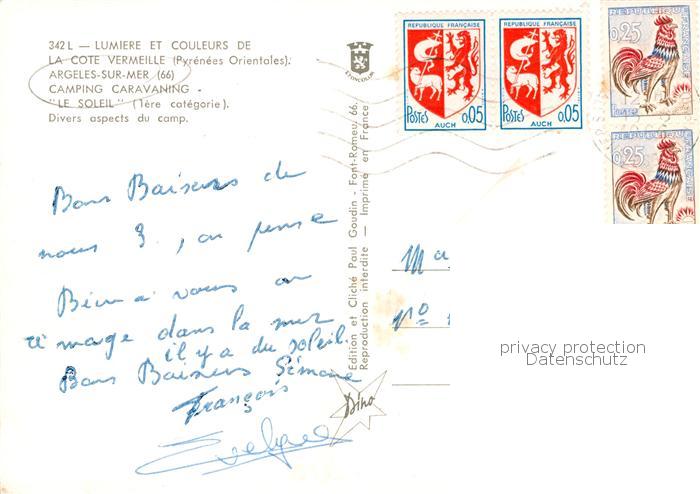 342 L — LUMIERE ET COULEURS DE
LA COTE VERMEILLE (Pyrénées Orientales).
ARGELES-SUR-MER (66)
CAMPING CARAVANING -
"LE SOLEIL" (1ère catégorie).
Divers aspects du camp.
Bons Baisers de
nous 3, on pense
Bien à vous on
mage dans la mer
il y a du soleil.
Bons Baisers Simone
François
Evelyne
Edition et Cliché Paul Goudin - Font-Romeu, 66.
Reproduction interdite — Imprimé en France
Dino
REPUBLIQUE FRANÇAISE
POSTES 0,05
AUCH
REPUBLIQUE FRANÇAISE
POSTES 0,05
AUCH
0,25
0,25
Ma
No
privacy protection
Datenschutz